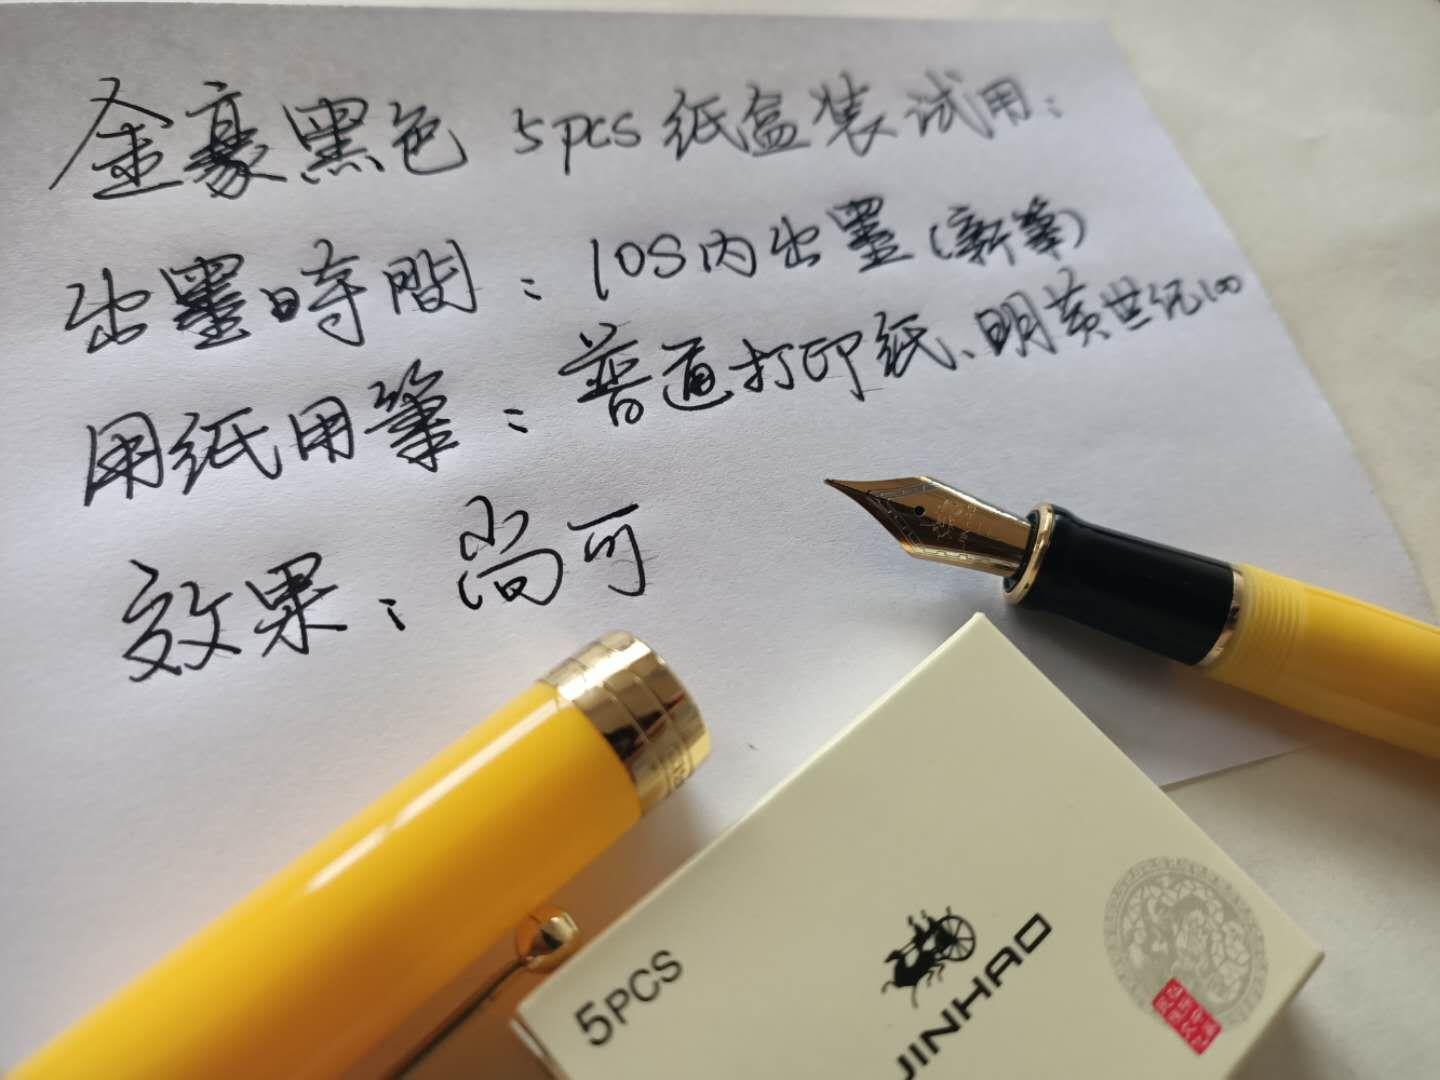 金豪黑色 5pcs 纸盒装试用：
出墨時間：10S内出墨（新筆）
用纸用筆：普通打印纸、明黄世纪100
效果：尚可
5PCS
JINHAO